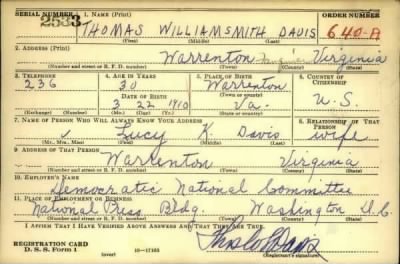 SERIAL NUMBER 1. NAME (Print) ORDER NUMBER
2533 THOMAS WILLIAMSMITH DAVIS 640-A
(First) (Middle) (Last)
2. ADDRESS (Print)
Warrenton Virginia
(Number and street or R. F. D. number) (Town) (County) (State)
3. TELEPHONE 4. AGE IN YEARS 5. PLACE OF BIRTH 6. COUNTRY OF CITIZENSHIP
236 30 Warrenton
DATE OF BIRTH
3 22 1910 Va. U.S.
(Exchange) (Number) (Mo.) (Day) (Yr.) (State or country)
7. NAME OF PERSON WHO WILL ALWAYS KNOW YOUR ADDRESS 8. RELATIONSHIP OF THAT PERSON
Lucy K. Davis wife
(Mr., Mrs., Miss) (First) (Middle) (Last)
9. ADDRESS OF THAT PERSON
Warrenton Virginia
(Number and street or R. F. D. number) (Town) (County) (State)
10. EMPLOYER'S NAME
Democratic National Committee
11. PLACE OF EMPLOYMENT OR BUSINESS
National Press Bldg. Washington D.C.
(Number and street or R. F. D. number) (Town) (County) (State)
I AFFIRM THAT I HAVE VERIFIED ABOVE ANSWERS AND THAT THEY ARE TRUE.
REGISTRATION CARD
D. S. S. Form 1 (over) 16-17105